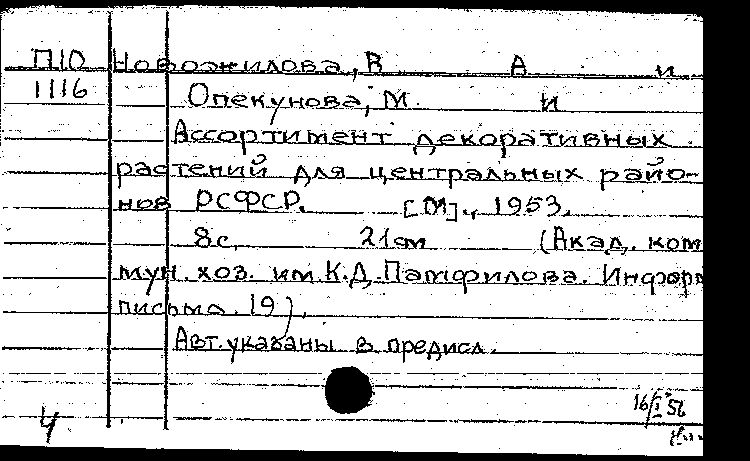 П10 Новожилова, В А и
1116 Опекунова, М. И
Ассортимент декоративных
растений для центральных райо-
нов РСФСР. [М]., 1953.
8с. 21см (Акад. ком
мун. хоз. им. К.Д. Памфилова. Информ
письмо 19).
Авт. указаны в предисл.
16/I 56
4